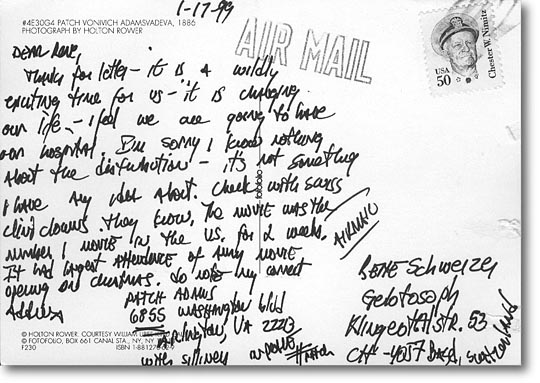 1-17-99
#4E30G4 PATCH VONIVICH ADAMSVADEVA, 1886
PHOTOGRAPH BY HOLTON ROWER
AIR MAIL
USA
50
Chester W. Nimitz
DEAR RENE,
Thanks for letter - it is a wildly
exciting time for us - it is changing
our life - I feel we are going to have
our hospital. I'm sorry I know nothing
about the disfunction - it's not something
I have any idea about. Check with swiss
clinic clowns. they know. The movie was the
number 1 movie in the US. for 2 weeks.
It had largest attendence of any movie
opening on christmas. So note my correct
Address
PATCH ADAMS
6855 WASHINGTON Blvd
Arlington, VA 22213
with silliness
Patch
AIRMAIL
RENE Schweizer
Gelotosoph
Klingentalstr. 53
CH-4057 Basel, Switzerland
© HOLTON ROWER. COURTESY WILLIAM
© FOTOFOLIO, BOX 661 CANAL STA., NY, NY
F230
ISBN 1-881270-62-9